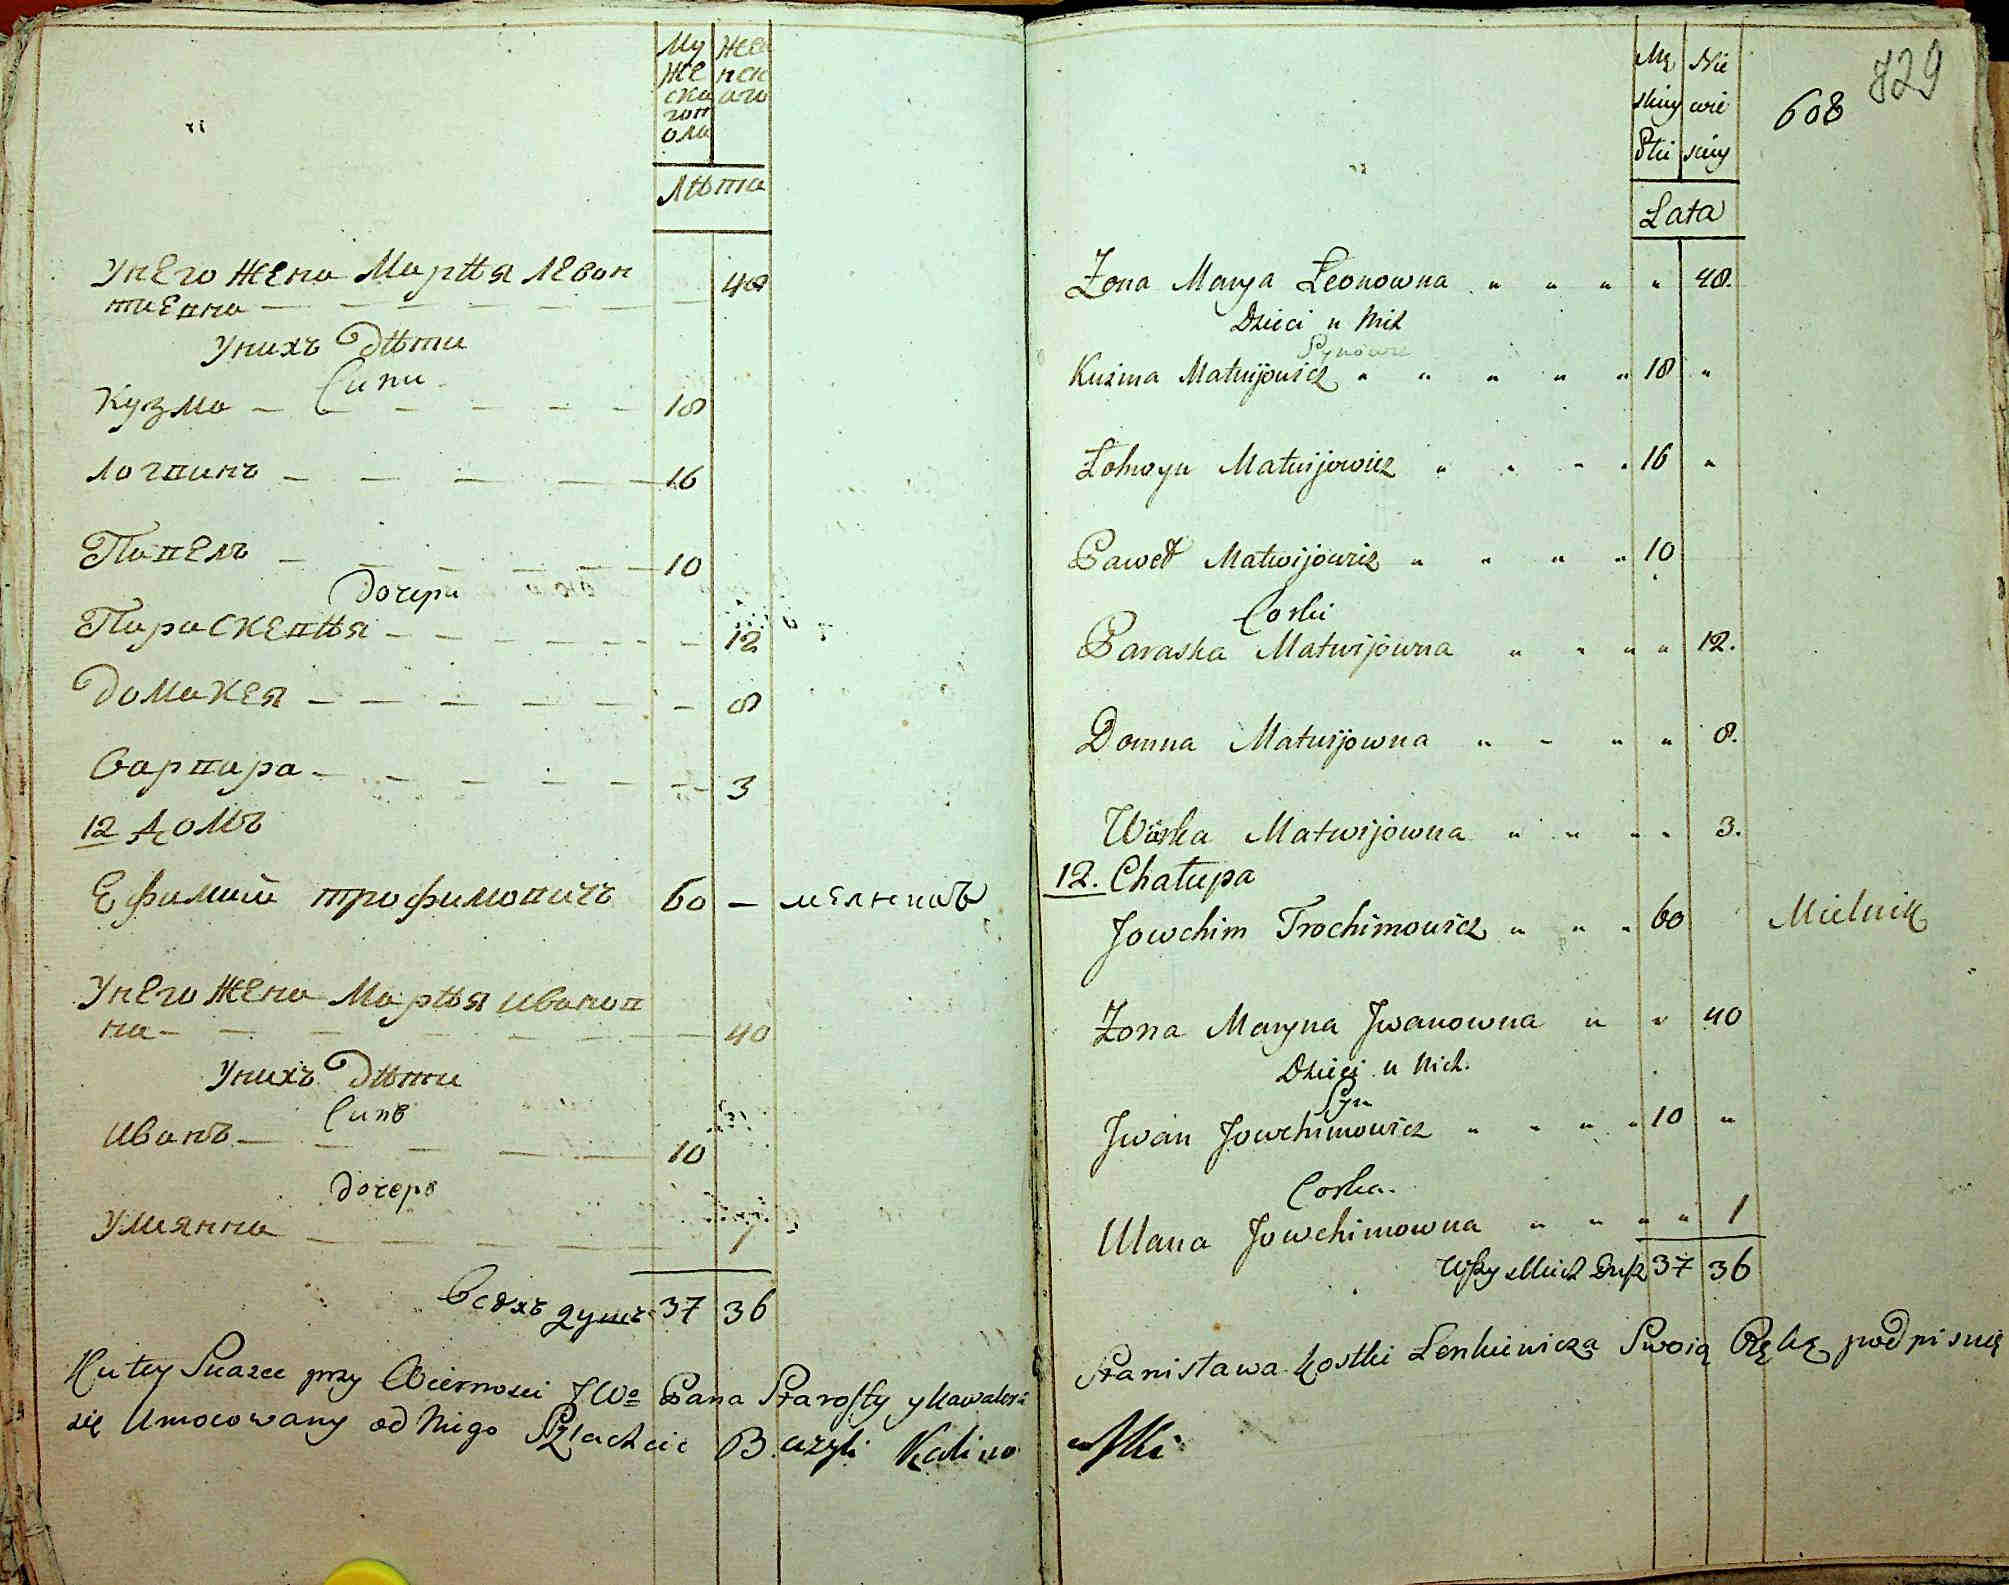 Му Жен
же ск
ска аго
гоп
ола
Лѣта
Унего жена Марѣя Левон
тиевна — — — — — — 48
Унихъ дѣти
Сини
Кузма — — — — — — 18
Логвинъ — — — — — 16
Павелъ — — — — — 10
дочери
Параскевѣя — — — — — — 12
Домакея — — — — — — — 8
Варвара — — — — — — 3
12 Домъ
Ефимий Трофимовичъ 60 — мелникъ
Унего жена Марѣя Иванов
на — — — — — — — 40
Унихъ дѣти
Синъ
Иванъ — — — — — 10
дочеръ
Улиянна — — — — — 1
Всѣхъ душъ 37 36
Ku tey Skazce przy Wiernosci JWo Pana Starosty y Kawalera
się Umocowany od Niego Szlachcic Bazyli Kalino
608 829
Mę Nie
skiey wie
Płci sciey
Lata
Zona Marya Leonowna " " " " 48.
Dzieci u Nich
Synowie
Kuzma Matwijowicz " " " " " 18 "
Lohwyn Matwijowicz " " " " 16 "
Paweł Matwijowicz " " " " 10
Corki
Paraska Matwijowna " " " " 12.
Domna Matwijowna " " " " 8.
Warka Matwijowna " " " " 3.
12. Chałupa
Jowchim Trochimowicz " " " 60 Mielnik
Zona Maryna Jwanowna " " 40
Dzieci u Nich.
Syn
Jwan Jowchimowicz " " " " 10 "
Corka.
Ulana Jowchimowna " " " " 1
Wszystkich Dusz 37 36
Stanisława Kostki Lenkiewicza Swoią Ręką podpisuię
wski